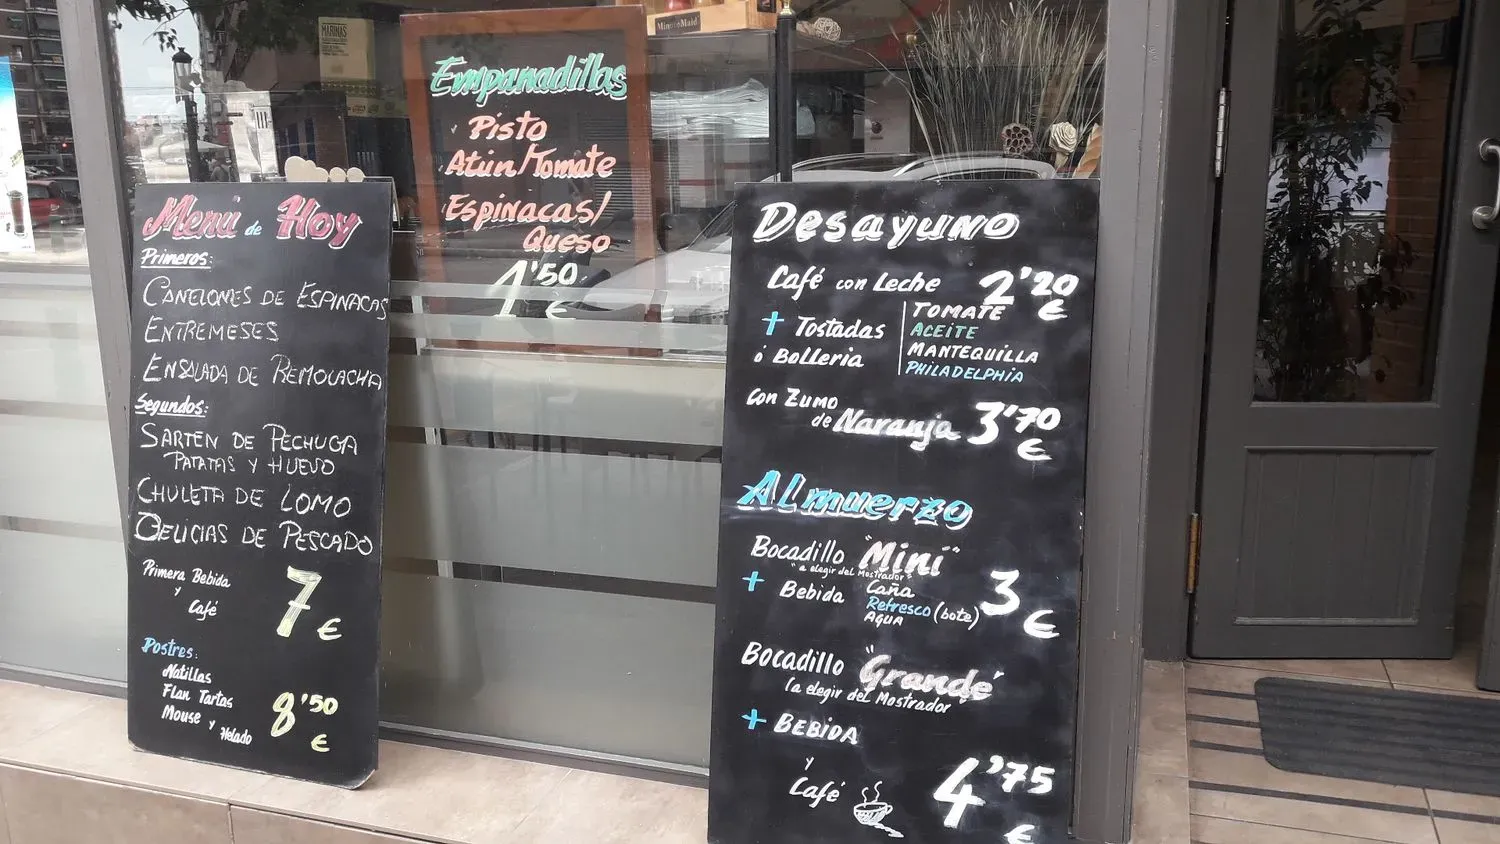 Menú de Hoy
Primeros:
CANELONES DE ESPINACAS
ENTREMESES
ENSALADA DE REMOLACHA
Segundos:
SARTÉN DE PECHUGA
PATATAS Y HUEVO
CHULETA DE LOMO
DELICIAS DE PESCADO
Primera Bebida
y
Café
7 €
Postres:
Natillas
Flan Tartas
Mouse y
Helado
8'50
€
MARINAS
Minute Maid
Empanadillas
Pisto
Atún/Tomate
Espinacas/
Queso
1'50
€
Desayuno
Café con Leche 2'20
€
+ Tostadas
ó Bolleria
TOMATE
ACEITE
MANTEQUILLA
PHILADELPHIA
con Zumo
de Naranja 3'70
€
ALmuerzo
Bocadillo "Mini"
"a elegir del Mostrador"
+ Bebida
Caña
Refresco (bote)
AGUA
3
€
Bocadillo "Grande"
(a elegir del Mostrador
+ BEBIDA
y
Café
4'75
€